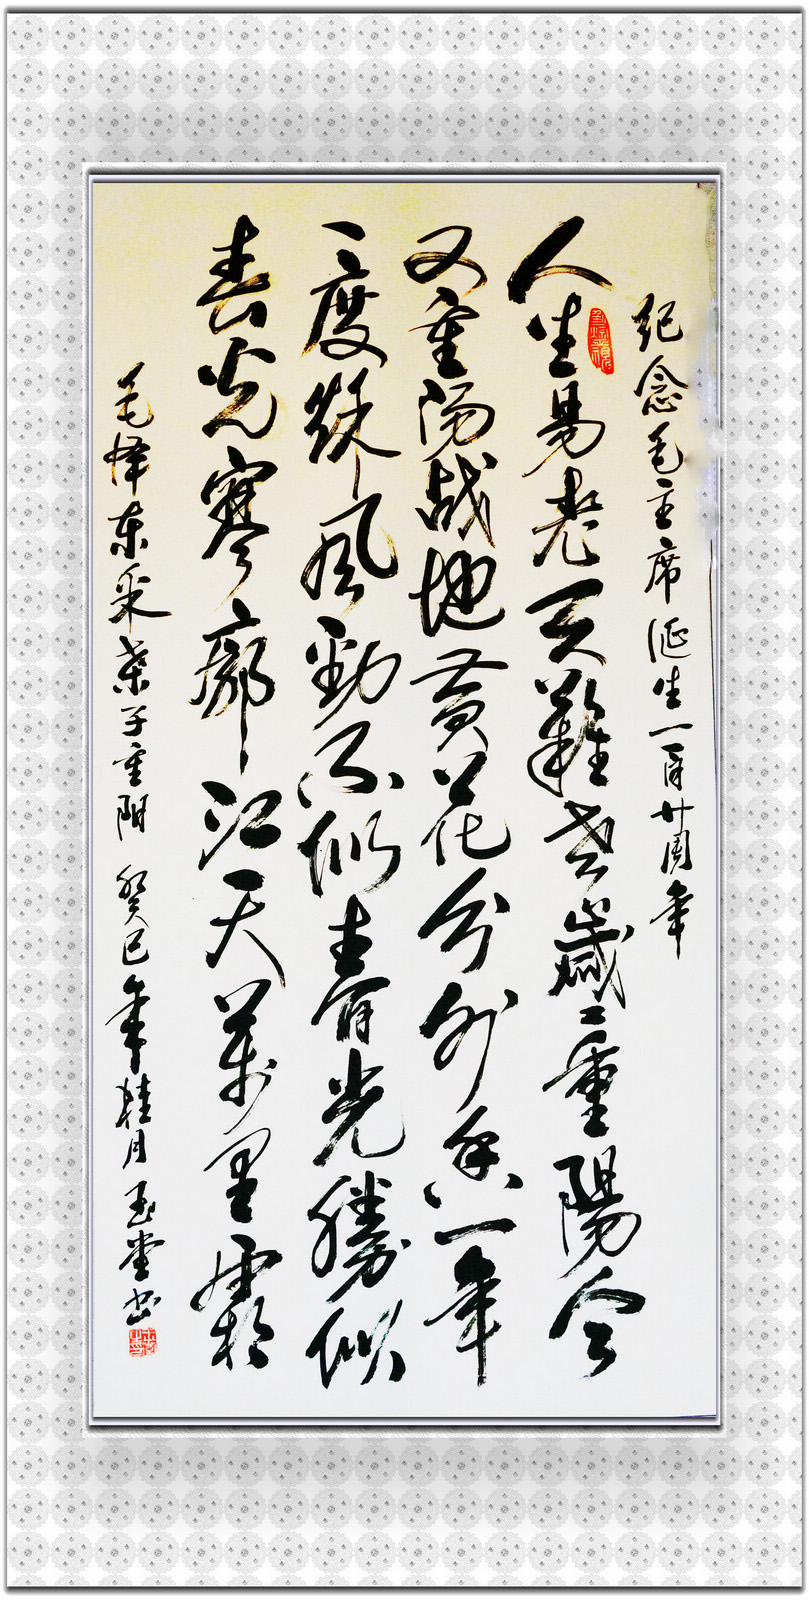 纪念毛主席诞生一百廿周年
人生易老天難老歲〻重陽今
又重陽战地黄花分外香一年
一度秋風勁不似春光勝似
春光寥廓江天萬里霜
毛泽东采桑子重阳 癸巳年桂月玉堂书